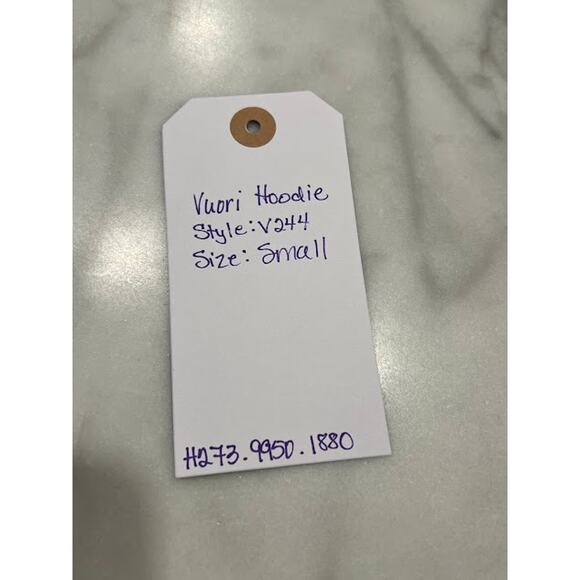 Vuori Hoodie
Style: V244
Size: Small
H273.9950.1880